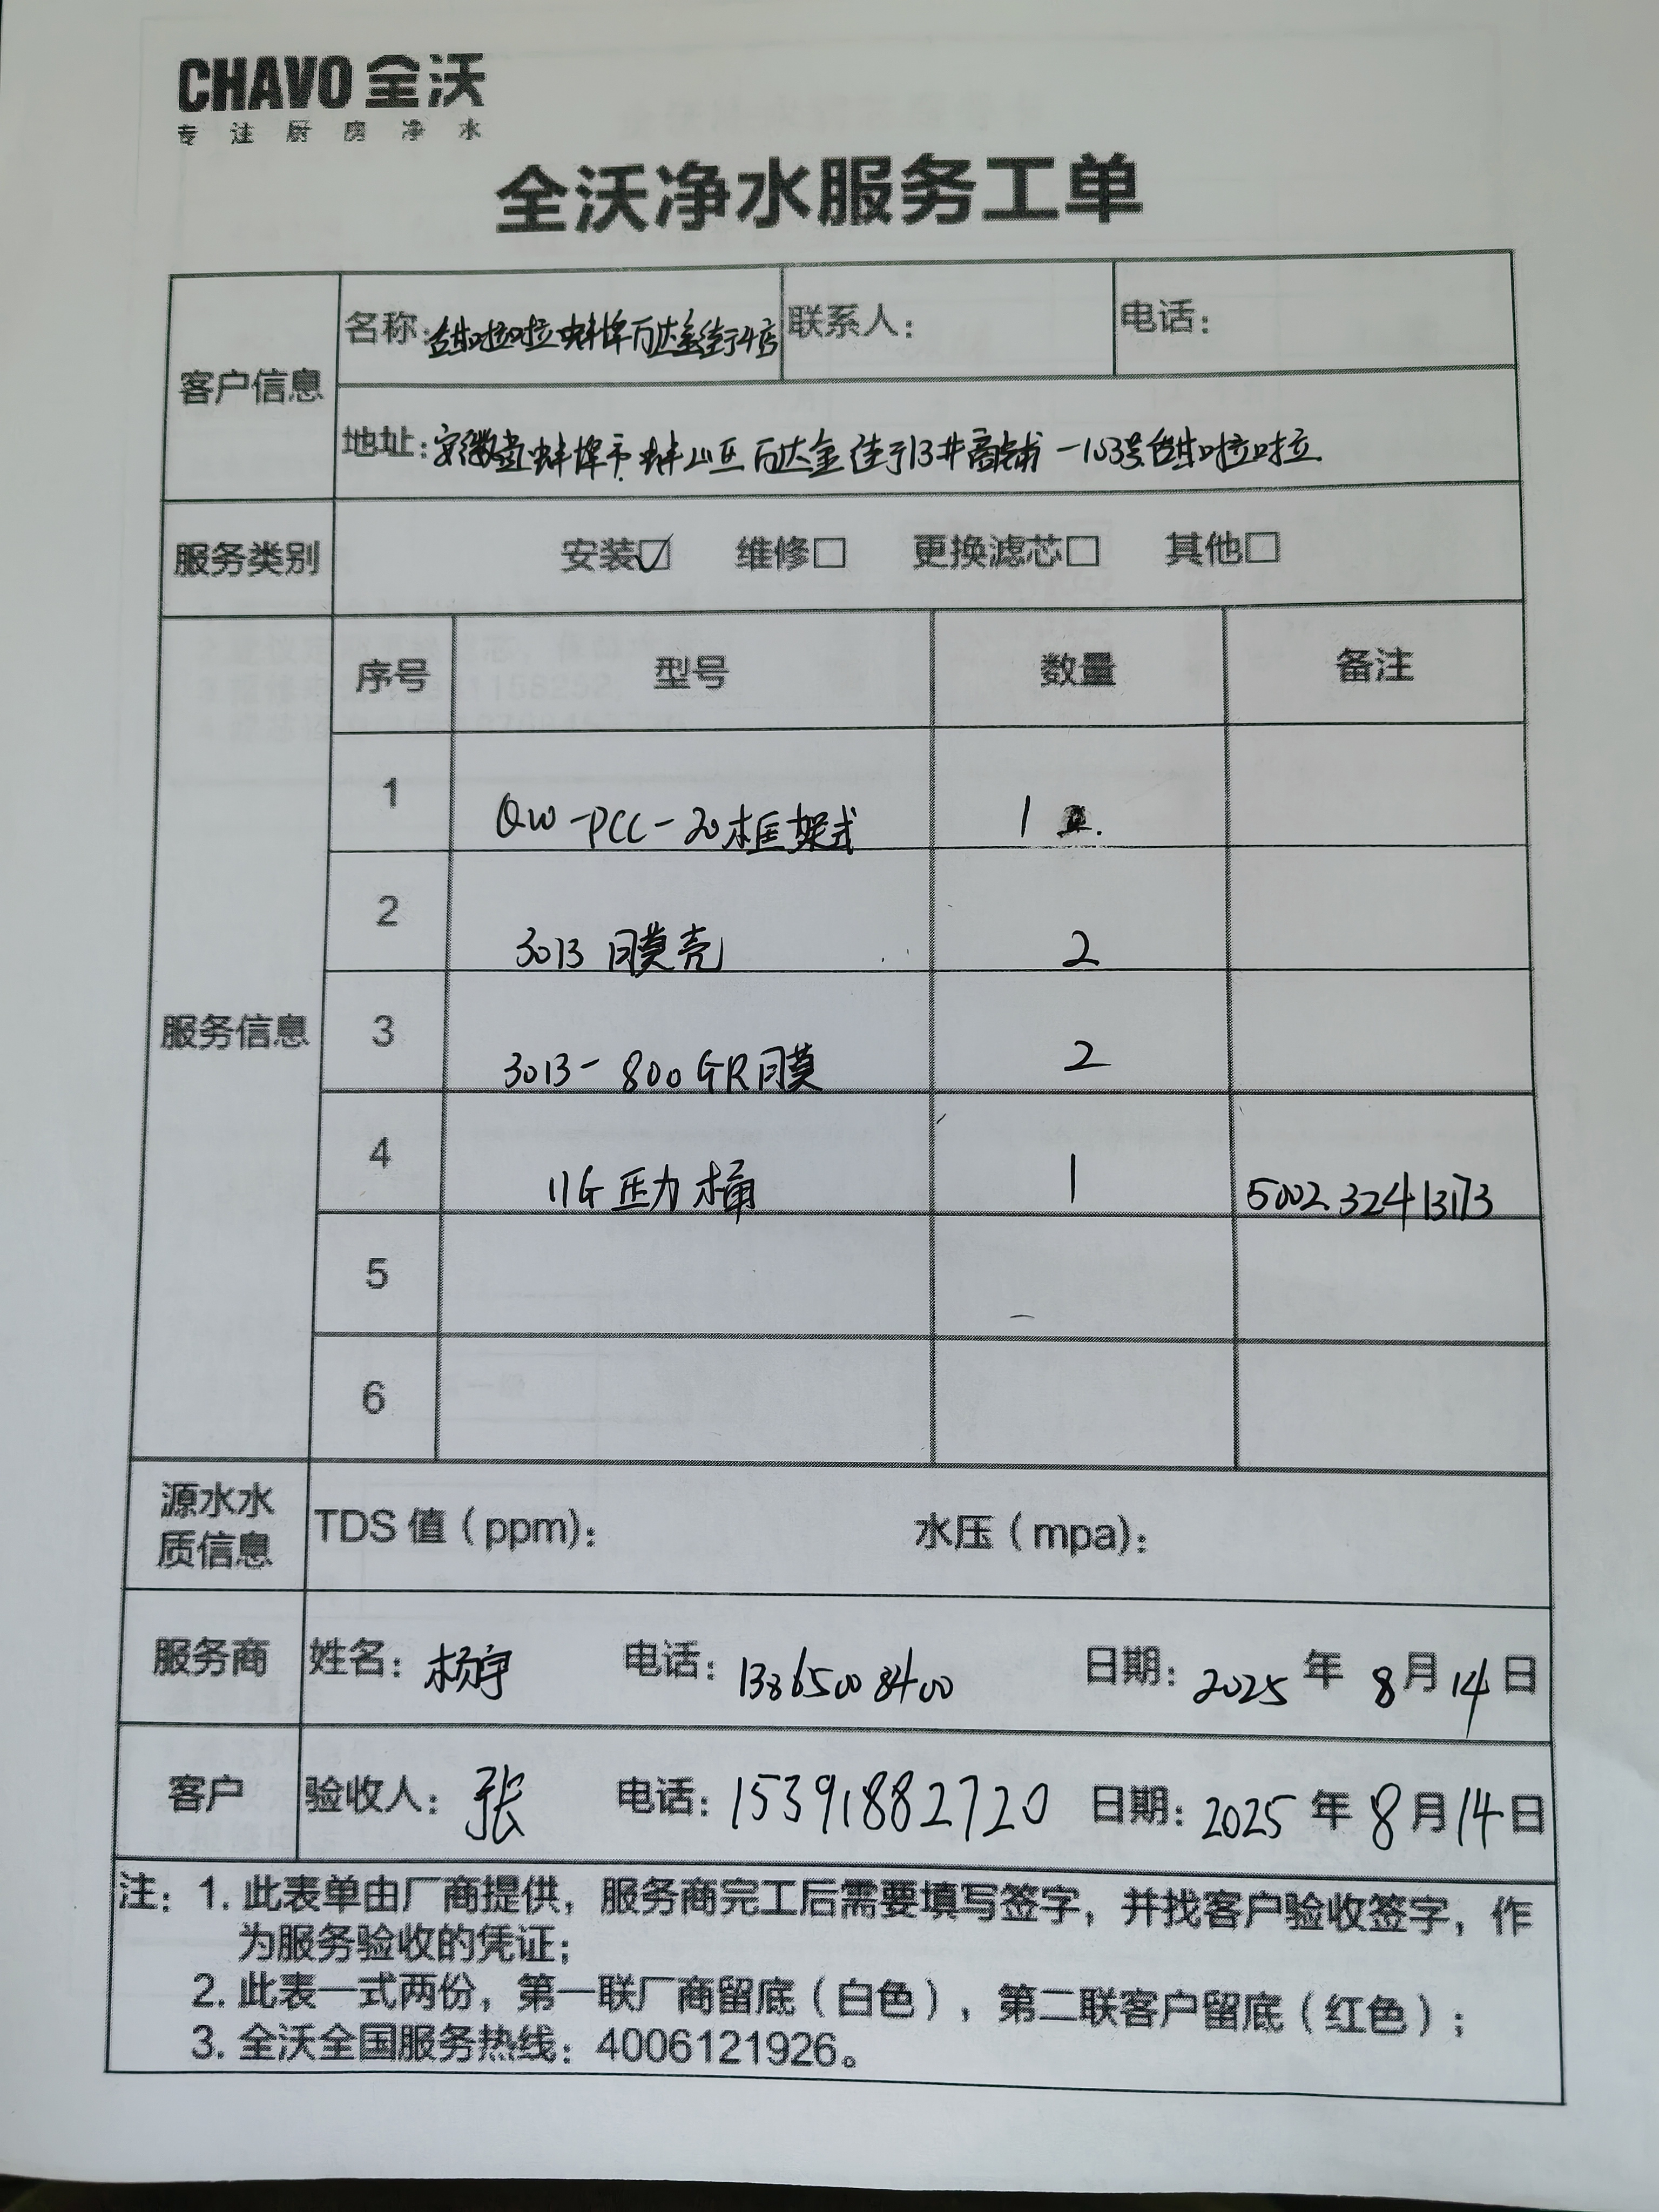 CHAVO 全沃
专注厨房净水
全沃净水服务工单
客户信息
名称：甜啦啦蚌埠万达金街店
联系人：
电话：
地址：安徽省蚌埠市蚌山区万达金街13#商铺-103号甜啦啦
服务类别
安装☑ 维修□ 更换滤芯□ 其他□
服务信息
序号 型号 数量 备注
1 QW-PCC-20框架式 1
2 3013膜壳 2
3 3013-800GR膜 2
4 11G压力桶 1 500232413173
5
6
源水水
质信息
TDS 值（ppm）：
水压（mpa）：
服务商 姓名：杨宇 电话：13865008400 日期：2025 年 8 月 14 日
客户 验收人：张 电话：15391882720 日期：2025 年 8 月 14 日
注：1. 此表单由厂商提供，服务商完工后需要填写签字，并找客户验收签字，作
为服务验收的凭证；
2. 此表一式两份，第一联厂商留底（白色），第二联客户留底（红色）；
3. 全沃全国服务热线：4006121926。